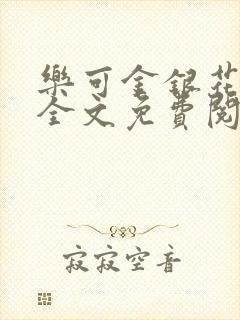 樂可金銀花
全文免費閱
寂寂空音